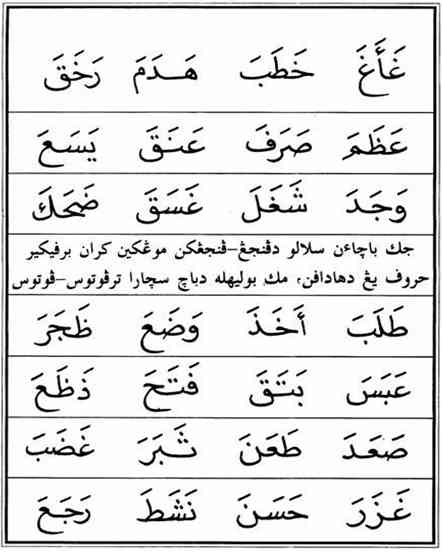 غَأَغَ خَطَبَ هَدَمَ رَخَقَ
عَظَمَ صَرَفَ عَنَقَ يَسَعَ
وَجَدَ شَغَلَ غَسَقَ ضَحَكَ
جك باچاءن سلالو دڤنجڠ–ڤنجڠكن موڠكين كران برفيكير
حروف يڠ دهادافن، مك بوليهله دباچ سچارا ترڤوتوس–ڤوتوس
طَلَبَ أَخَذَ وَضَعَ ظَجَرَ
عَبَسَ بَتَقَ فَتَحَ ذَظَعَ
صَعَدَ طَعَنَ ثَبَرَ غَضَبَ
غَزَرَ حَسَنَ نَشَطَ رَجَعَ